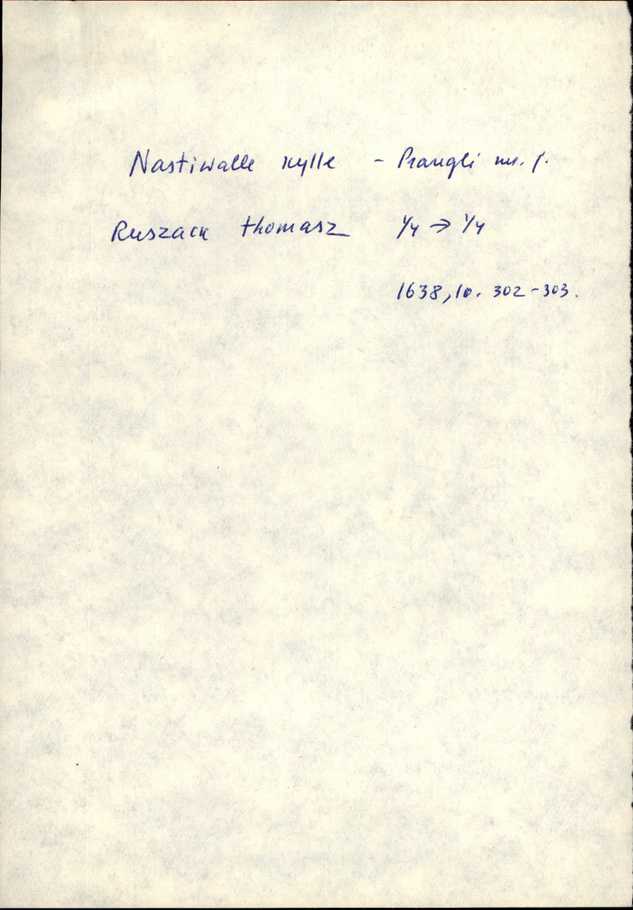 Nastiwalle kylle - Prangli mr. f.
Ruszack thomasz 1/4 → 1/4
1638, 10. 302-303.